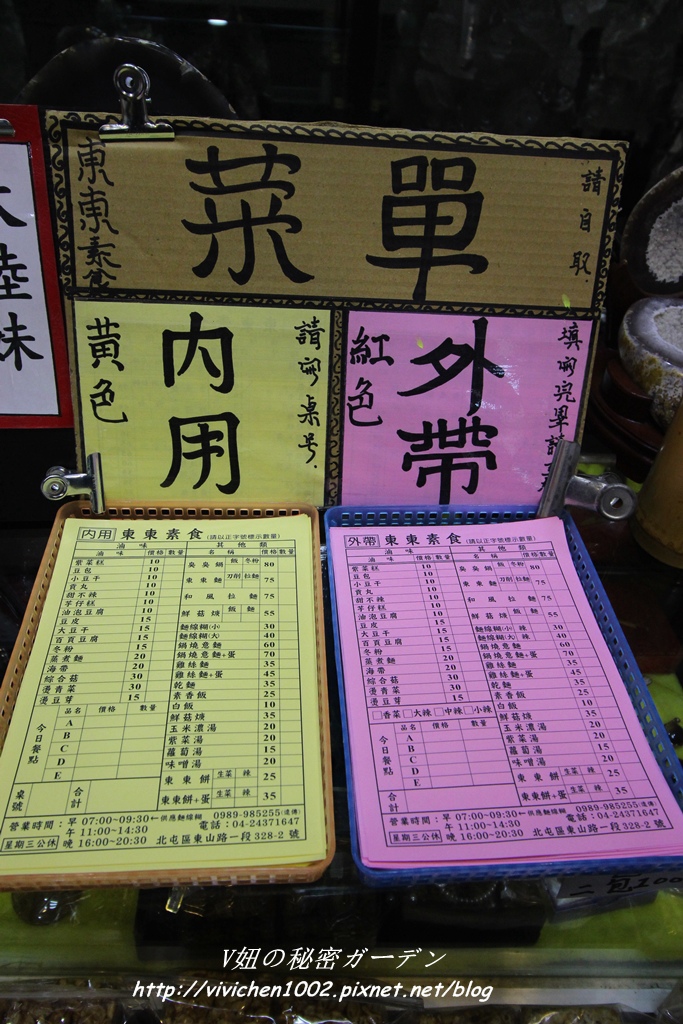 東東素食
菜單
請自取.
大陸妹
黃色
內用
請寫桌号.
紅色
外帶
內用 東東素食 (請以正字號標示數量)
滷味 價格 數量
其他類
名稱 價格 數量
紫菜糕 10
豆包 10
小豆干 10
貢丸 10
甜不辣 10
芋仔糕 10
油泡豆腐 10
豆皮 15
大豆干 15
百頁豆腐 15
冬粉 15
蒸煮麵 20
海帶 20
綜合菇 30
燙青菜 30
燙豆芽 15
臭臭鍋 飯 冬粉 80
東東麵 刀削 拉麵 75
和風拉麵 75
鮮菇焿 飯 麵 55
麵線糊(小) 30
麵線糊(大) 40
鍋燒意麵 60
鍋燒意麵+蛋 70
雞絲麵 35
雞絲麵+蛋 45
乾麵 35
素香飯 25
白飯 10
鮮菇焿 35
玉米濃湯 20
紫菜湯 20
蘿蔔湯 20
味噌湯 15
東東餅 生菜 辣 25
東東餅+蛋 生菜 辣 35
今日餐點
品名 價格 數量
A
B
C
D
E
桌號
合計
營業時間：早 07:00~09:30←供應麵線糊 0989-985255(遠傳)
午 11:00~14:30 電話：04-24371647
星期三公休 晚 16:00~20:30 北屯區東山路一段 328-2 號
外帶 東東素食 (請以正字號標示數量)
滷味 價格 數量
其他類
名稱 價格 數量
紫菜糕 10
豆包 10
小豆干 10
貢丸 10
甜不辣 10
芋仔糕 10
油泡豆腐 10
豆皮 15
大豆干 15
百頁豆腐 15
冬粉 15
蒸煮麵 20
海帶 20
綜合菇 30
燙青菜 30
燙豆芽 15
□香菜 □大辣 □中辣 □小辣
臭臭鍋 飯 冬粉 80
東東麵 刀削 拉麵 75
和風拉麵 75
鮮菇焿 飯 麵 55
麵線糊(小) 辣 30
麵線糊(大) 辣 40
鍋燒意麵 60
鍋燒意麵+蛋 70
雞絲麵 35
雞絲麵+蛋 45
乾麵 35
素香飯 25
白飯 10
鮮菇焿 35
玉米濃湯 20
紫菜湯 20
蘿蔔湯 20
味噌湯 15
東東餅 生菜 辣 25
東東餅+蛋 生菜 辣 35
今日餐點
品名 價格 數量
A
B
C
D
E
合計
營業時間：早 07:00~09:30←供應麵線糊 0989-985255(遠傳)
午 11:00~14:30 電話：04-24371647
星期三公休 晚 16:00~20:30 北屯區東山路一段 328-2 號
V妞の秘密ガーデン
http://vivichen1002.pixnet.net/blog